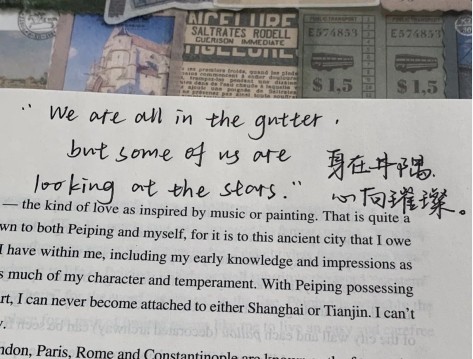 ANGELURE
SALTRATES RODELL
GUERISON IMMEDIATE
E574853
E574853
$1,5
$1,5
" We are all in the gutter,
but some of us are
looking at the stars."
身在井隅,
心向璀璨。
— the kind of love as inspired by music or painting. That is quite a
wn to both Peiping and myself, for it is to this ancient city that I owe
I have within me, including my early knowledge and impressions as
s much of my character and temperament. With Peiping possessing
rt, I can never become attached to either Shanghai or Tianjin. I can't
y.
ndon, Paris, Rome and Constantinople are known as the fo